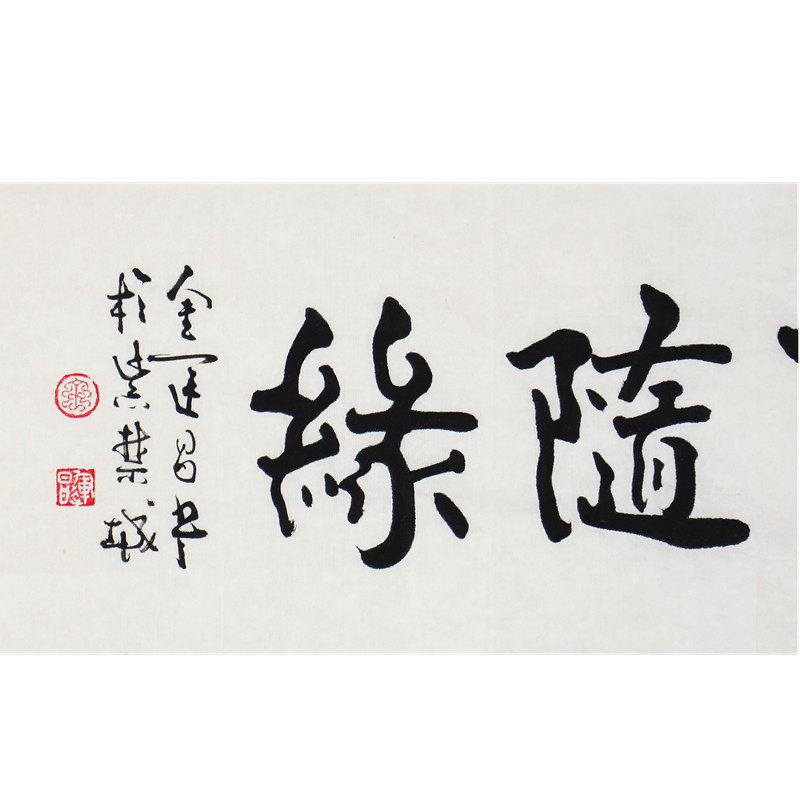 隨緣
金運昌書
於紫禁城